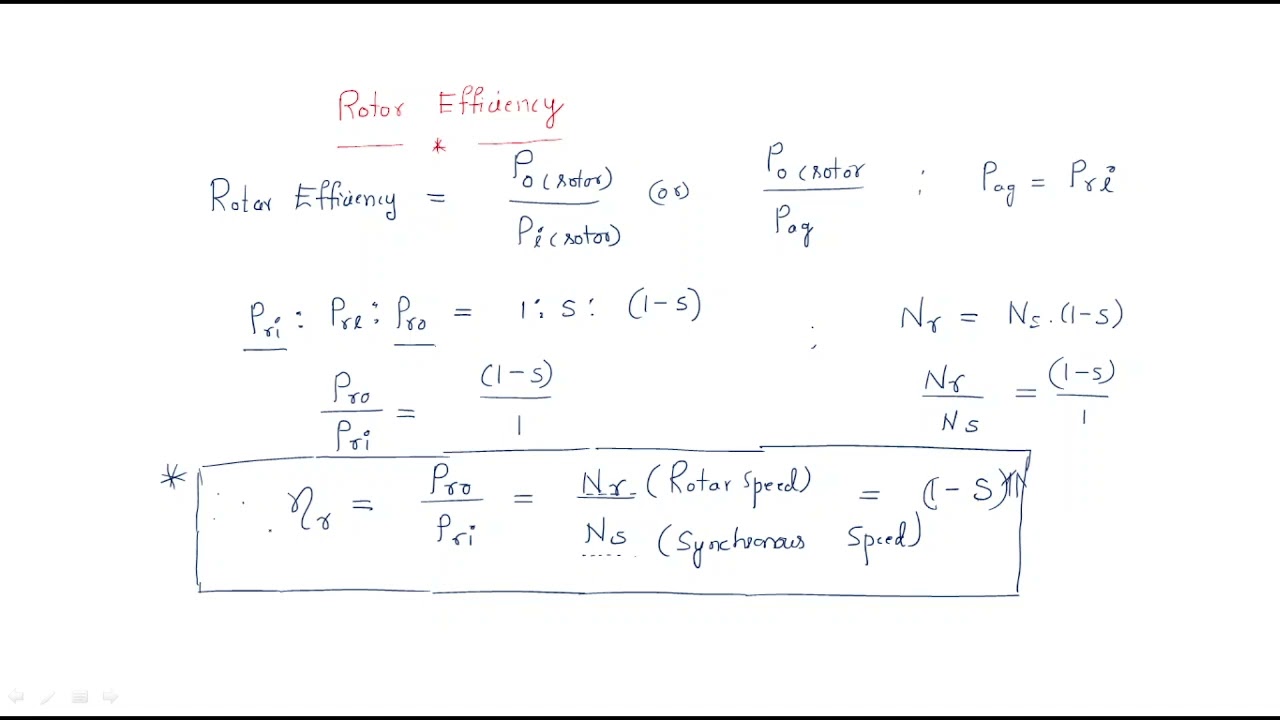 Rotor Efficiency
*
Rotar Efficiency = Po(rotor) / Pi(rotor) (or) Po(rotor / Pag ; Pag = Pri
Pri : Prl : Pro = 1 : S : (1-S) ; Nr = Ns.(1-S)
Pro / Pri = (1-S) / 1 Nr / Ns = (1-S) / 1
* ∴ ηr = Pro / Pri = Nr (Rotar Speed) / Ns (Synchronous Speed) = (1-S)